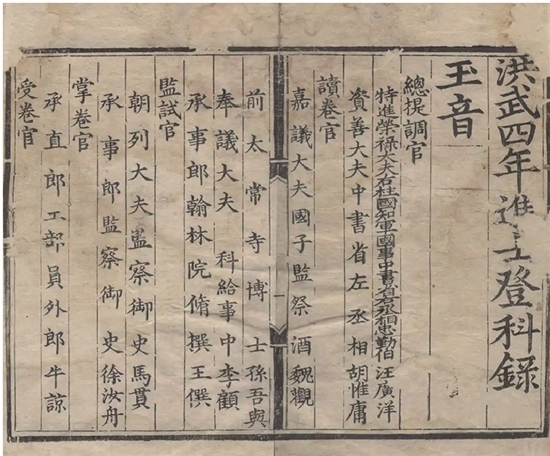 洪武四年進士登科錄
玉音
總提調官
特進榮祿大夫右柱國知軍國事中書省右丞相忠勤伯汪廣洋
資善大夫中書省左丞相胡惟庸
讀卷官
嘉議大夫國子監祭酒魏觀
一
前太常寺博士孫吾與
奉議大夫科給事中李顧
承事郎翰林院脩撰王僎
監試官
朝列大夫監察御史馬貫
承事郎監察御史徐汝舟
掌卷官
承直郎工部員外郎牛諒
受卷官